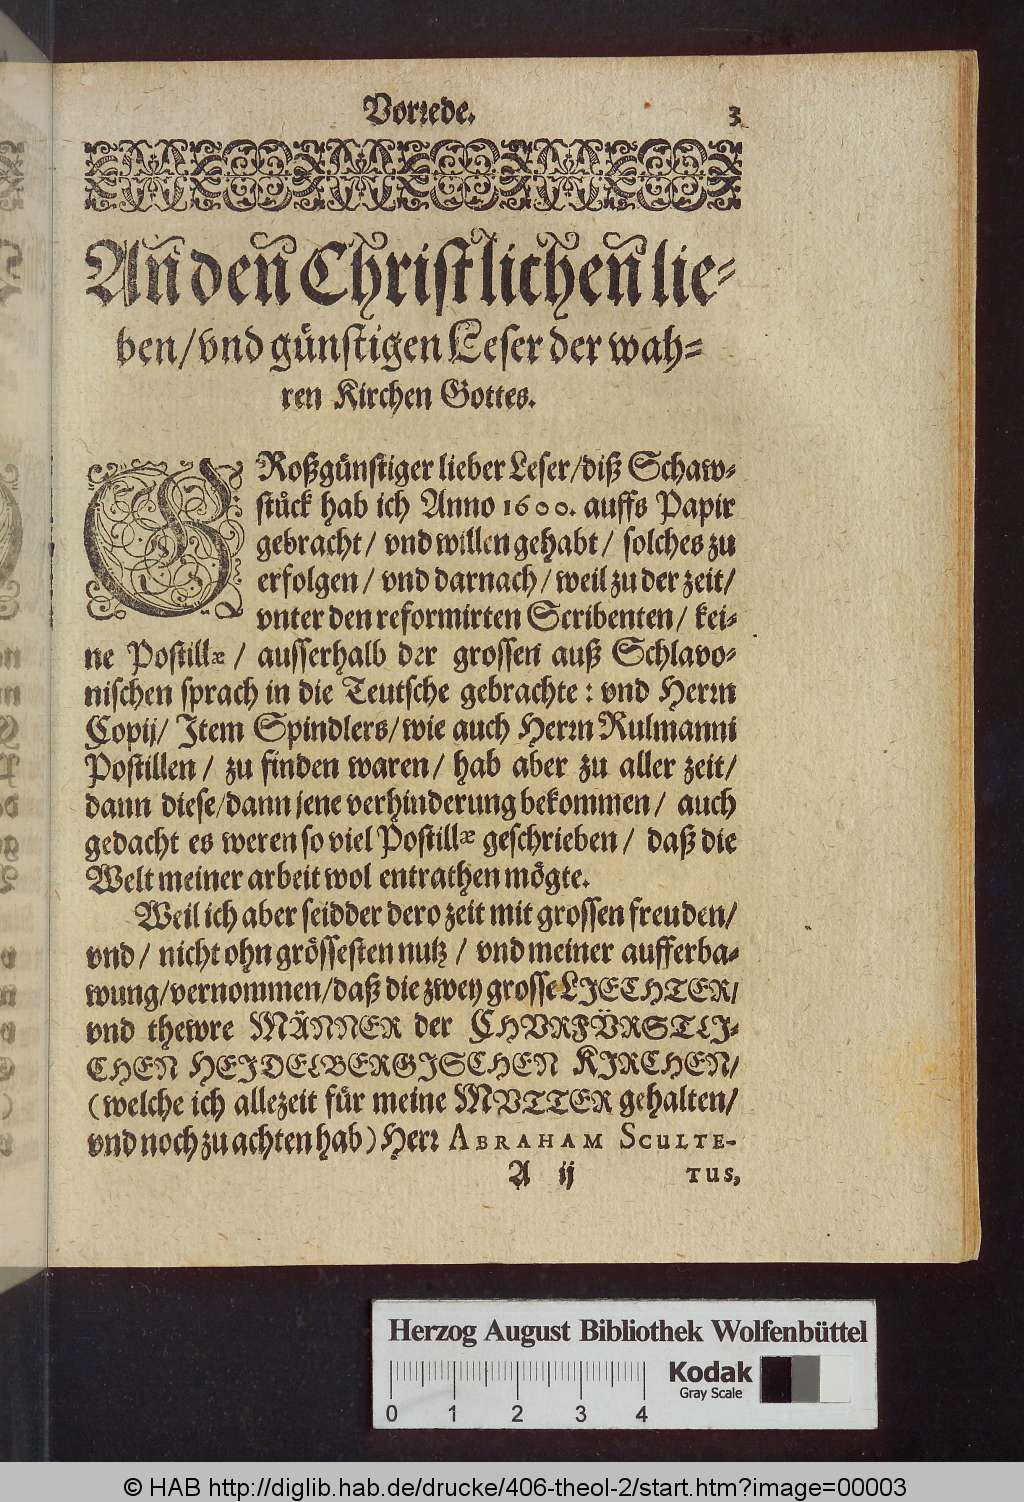 Vorrede.
3
An den Christlichen lie-
ben/ vnd günstigen Leser der wah-
ren Kirchen Gottes.
GRoßgünstiger lieber Leser/ diß Schaw-
stück hab ich Anno 1600. auffs Papir
gebracht/ vnd willen gehabt/ solches zu
erfolgen/ vnd darnach/ weil zu der zeit/
vnter den reformirten Scribenten/ kei-
ne Postillæ/ ausserhalb der grossen auß Schlavo-
nischen sprach in die Teutsche gebrachte: vnd Herrn
Copij/ Item Spindlers/ wie auch Herrn Rulmanni
Postillen/ zu finden waren/ hab aber zu aller zeit/
dann diese/ dann jene verhinderung bekommen/ auch
gedacht es weren so viel Postillæ geschrieben/ daß die
Welt meiner arbeit wol entrathen mögte.
Weil ich aber seidder dero zeit mit grossen freuden/
vnd/ nicht ohn grössesten nutz/ vnd meiner aufferba-
wung/ vernommen/ daß die zwey grosse LIECHTER/
vnd thewre MÄNNER der CHVRFÜRSTLI-
CHEN HEIDELBERGISCHEN KIRCHEN/
(welche ich allezeit für meine MVTTER gehalten/
vnd noch zu achten hab) Herr ABRAHAM SCULTE-
A ij
TUS,
Herzog August Bibliothek Wolfenbüttel
Kodak
Gray Scale
0 1 2 3 4
© HAB http://diglib.hab.de/drucke/406-theol-2/start.htm?image=00003